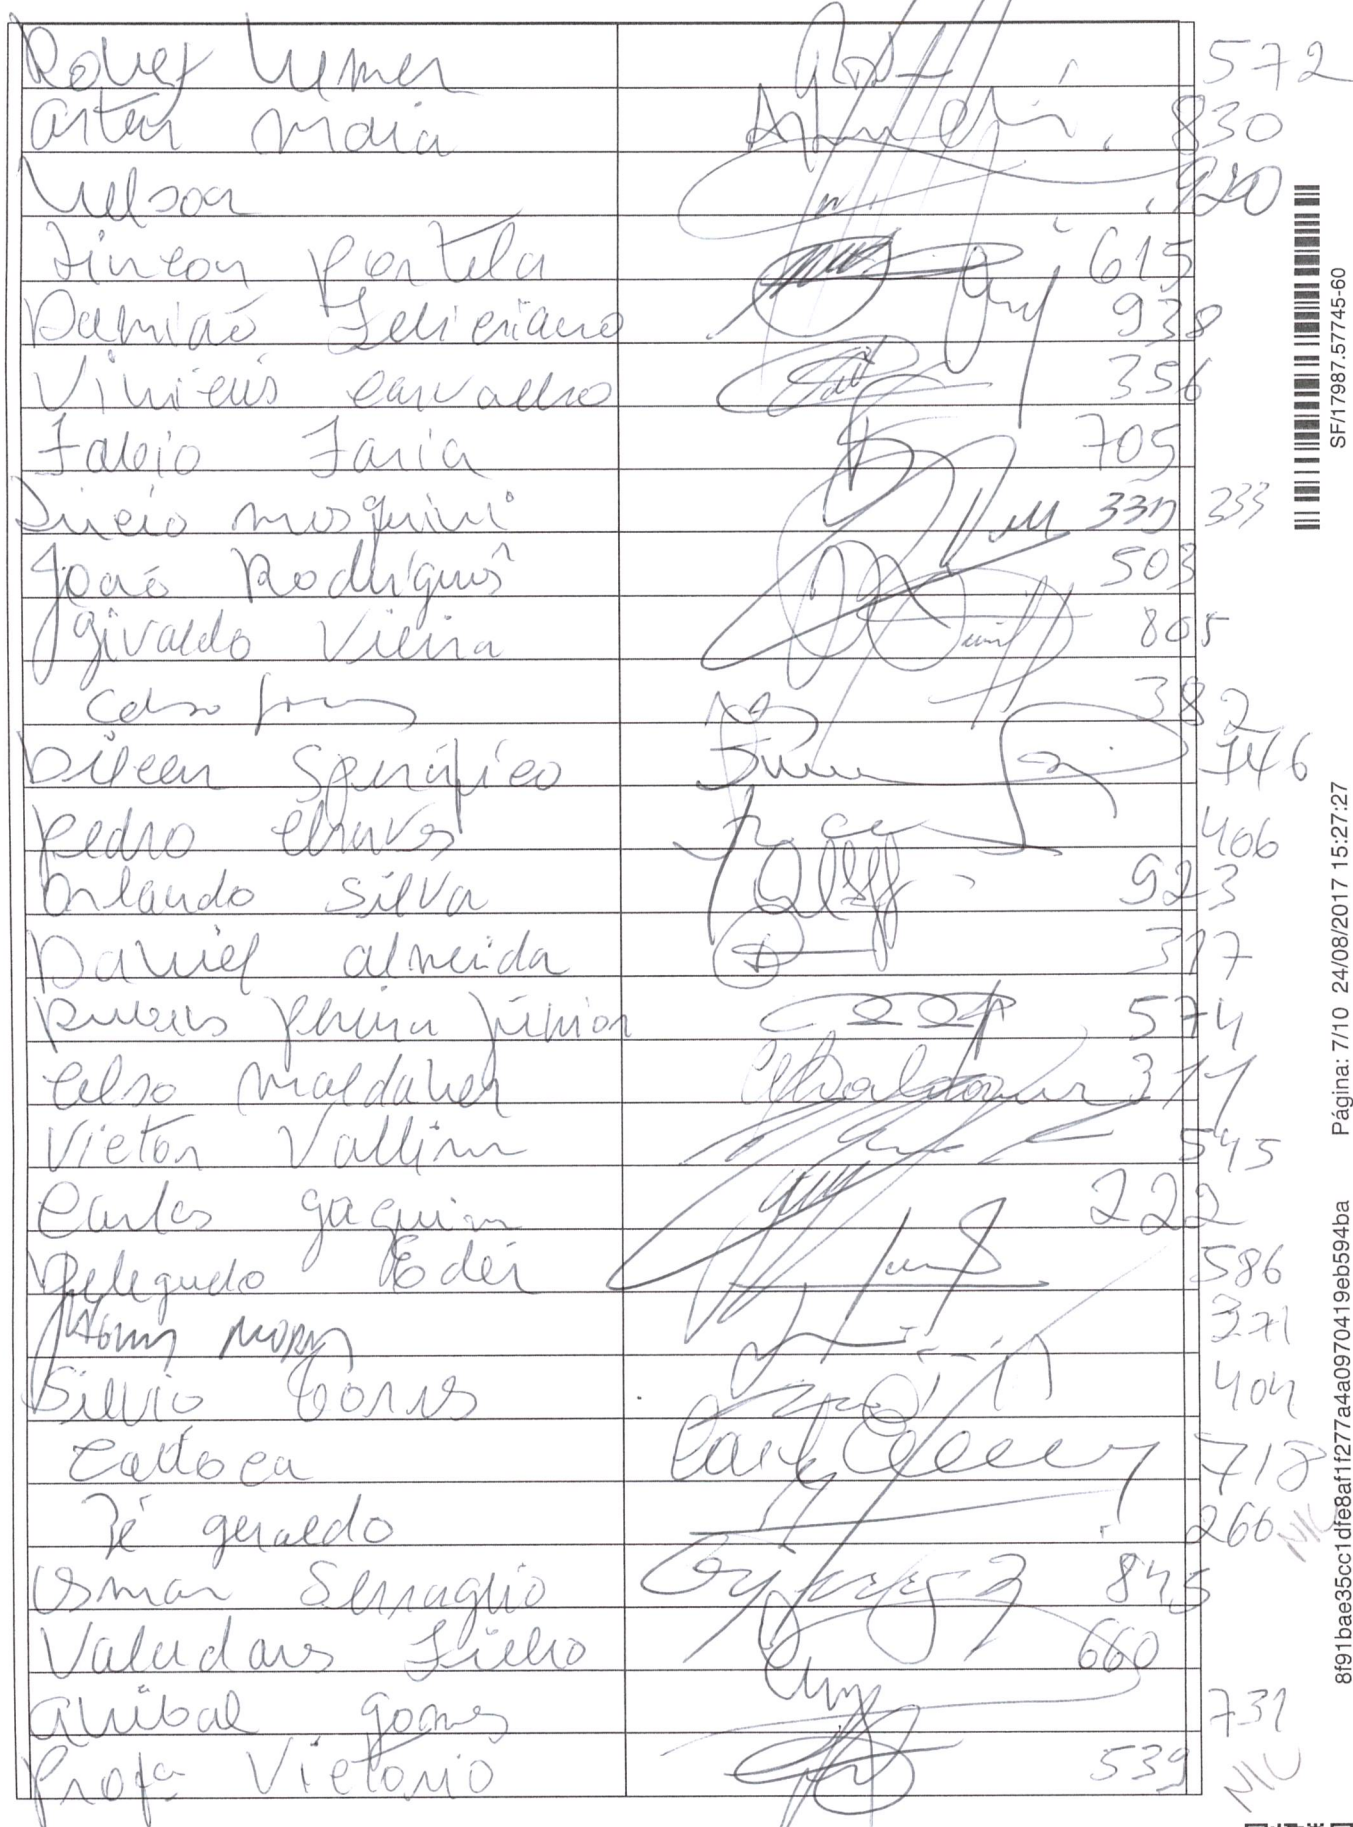 572
Artur Maia 830
Nelson 920
Zineon Portela 615
Damião Feliciano 938
Vinicius Carvalho 356
Fabio Faria 705
Lucio Mosquini 333 333
João Rodrigues 503
Givaldo Vieira 805
Celso 382
Dilceu Sperafico 746
Pedro Chaves 406
Orlando Silva 923
Daniel Almeida 317
Rubens Pereira Júnior 574
Celso Maldaner 311
Victor Vallim 545
Carlos Gaguim 222
Delegado Eder 586
371
Silvio Torres 404
Cadoca 718
Zé Geraldo 266
Osmar Serraglio 845
Valadares Filho 660
Anibal Gomes 731
Profª Victorio 539
SF/17987.57745-60
Página: 7/10 24/08/2017 15:27:27
8f91bae35cc1dfe8af1f277a4a0970419eb594ba